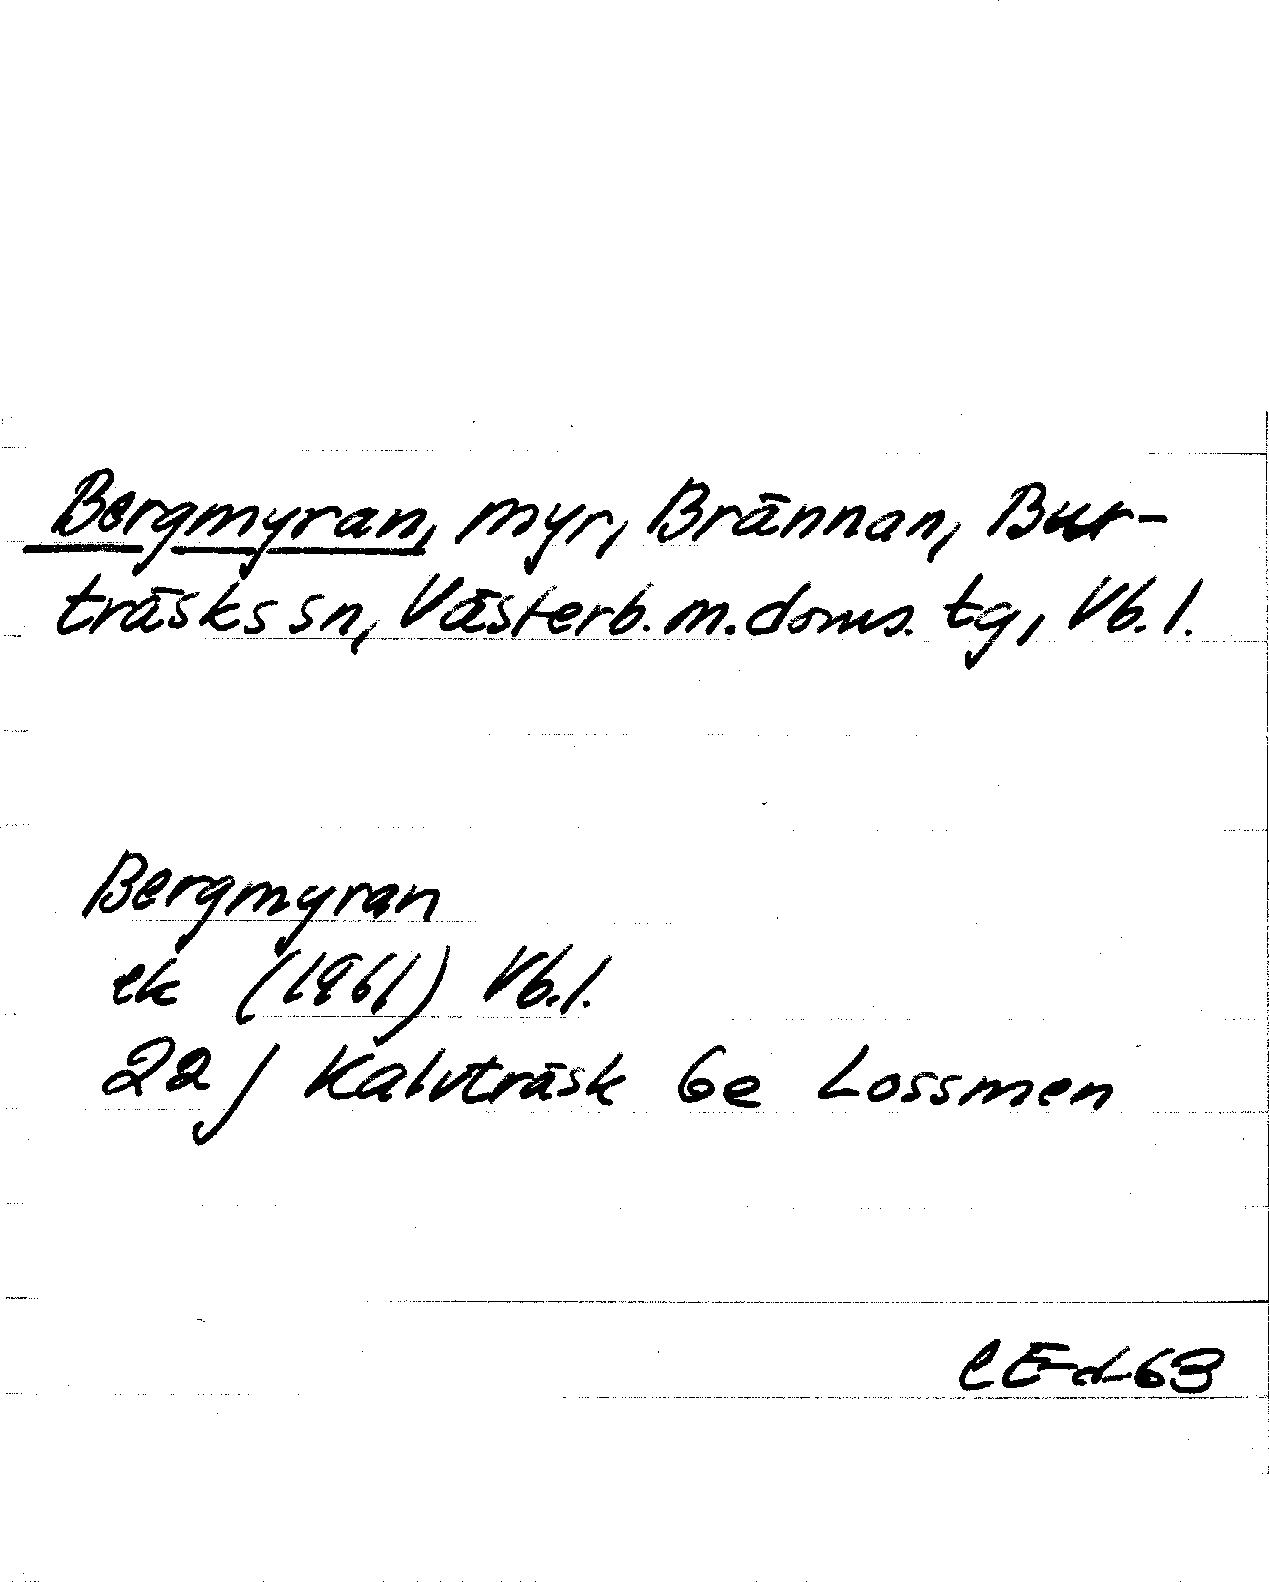 Bergmyran, myr, Brännan, Bur-
träsks sn, Västerb. m. doms. tg, Vb. l.
Bergmyran
ek (1961) Vb. l.
22 J Kalvträsk 6e Lossmen
CEd-63